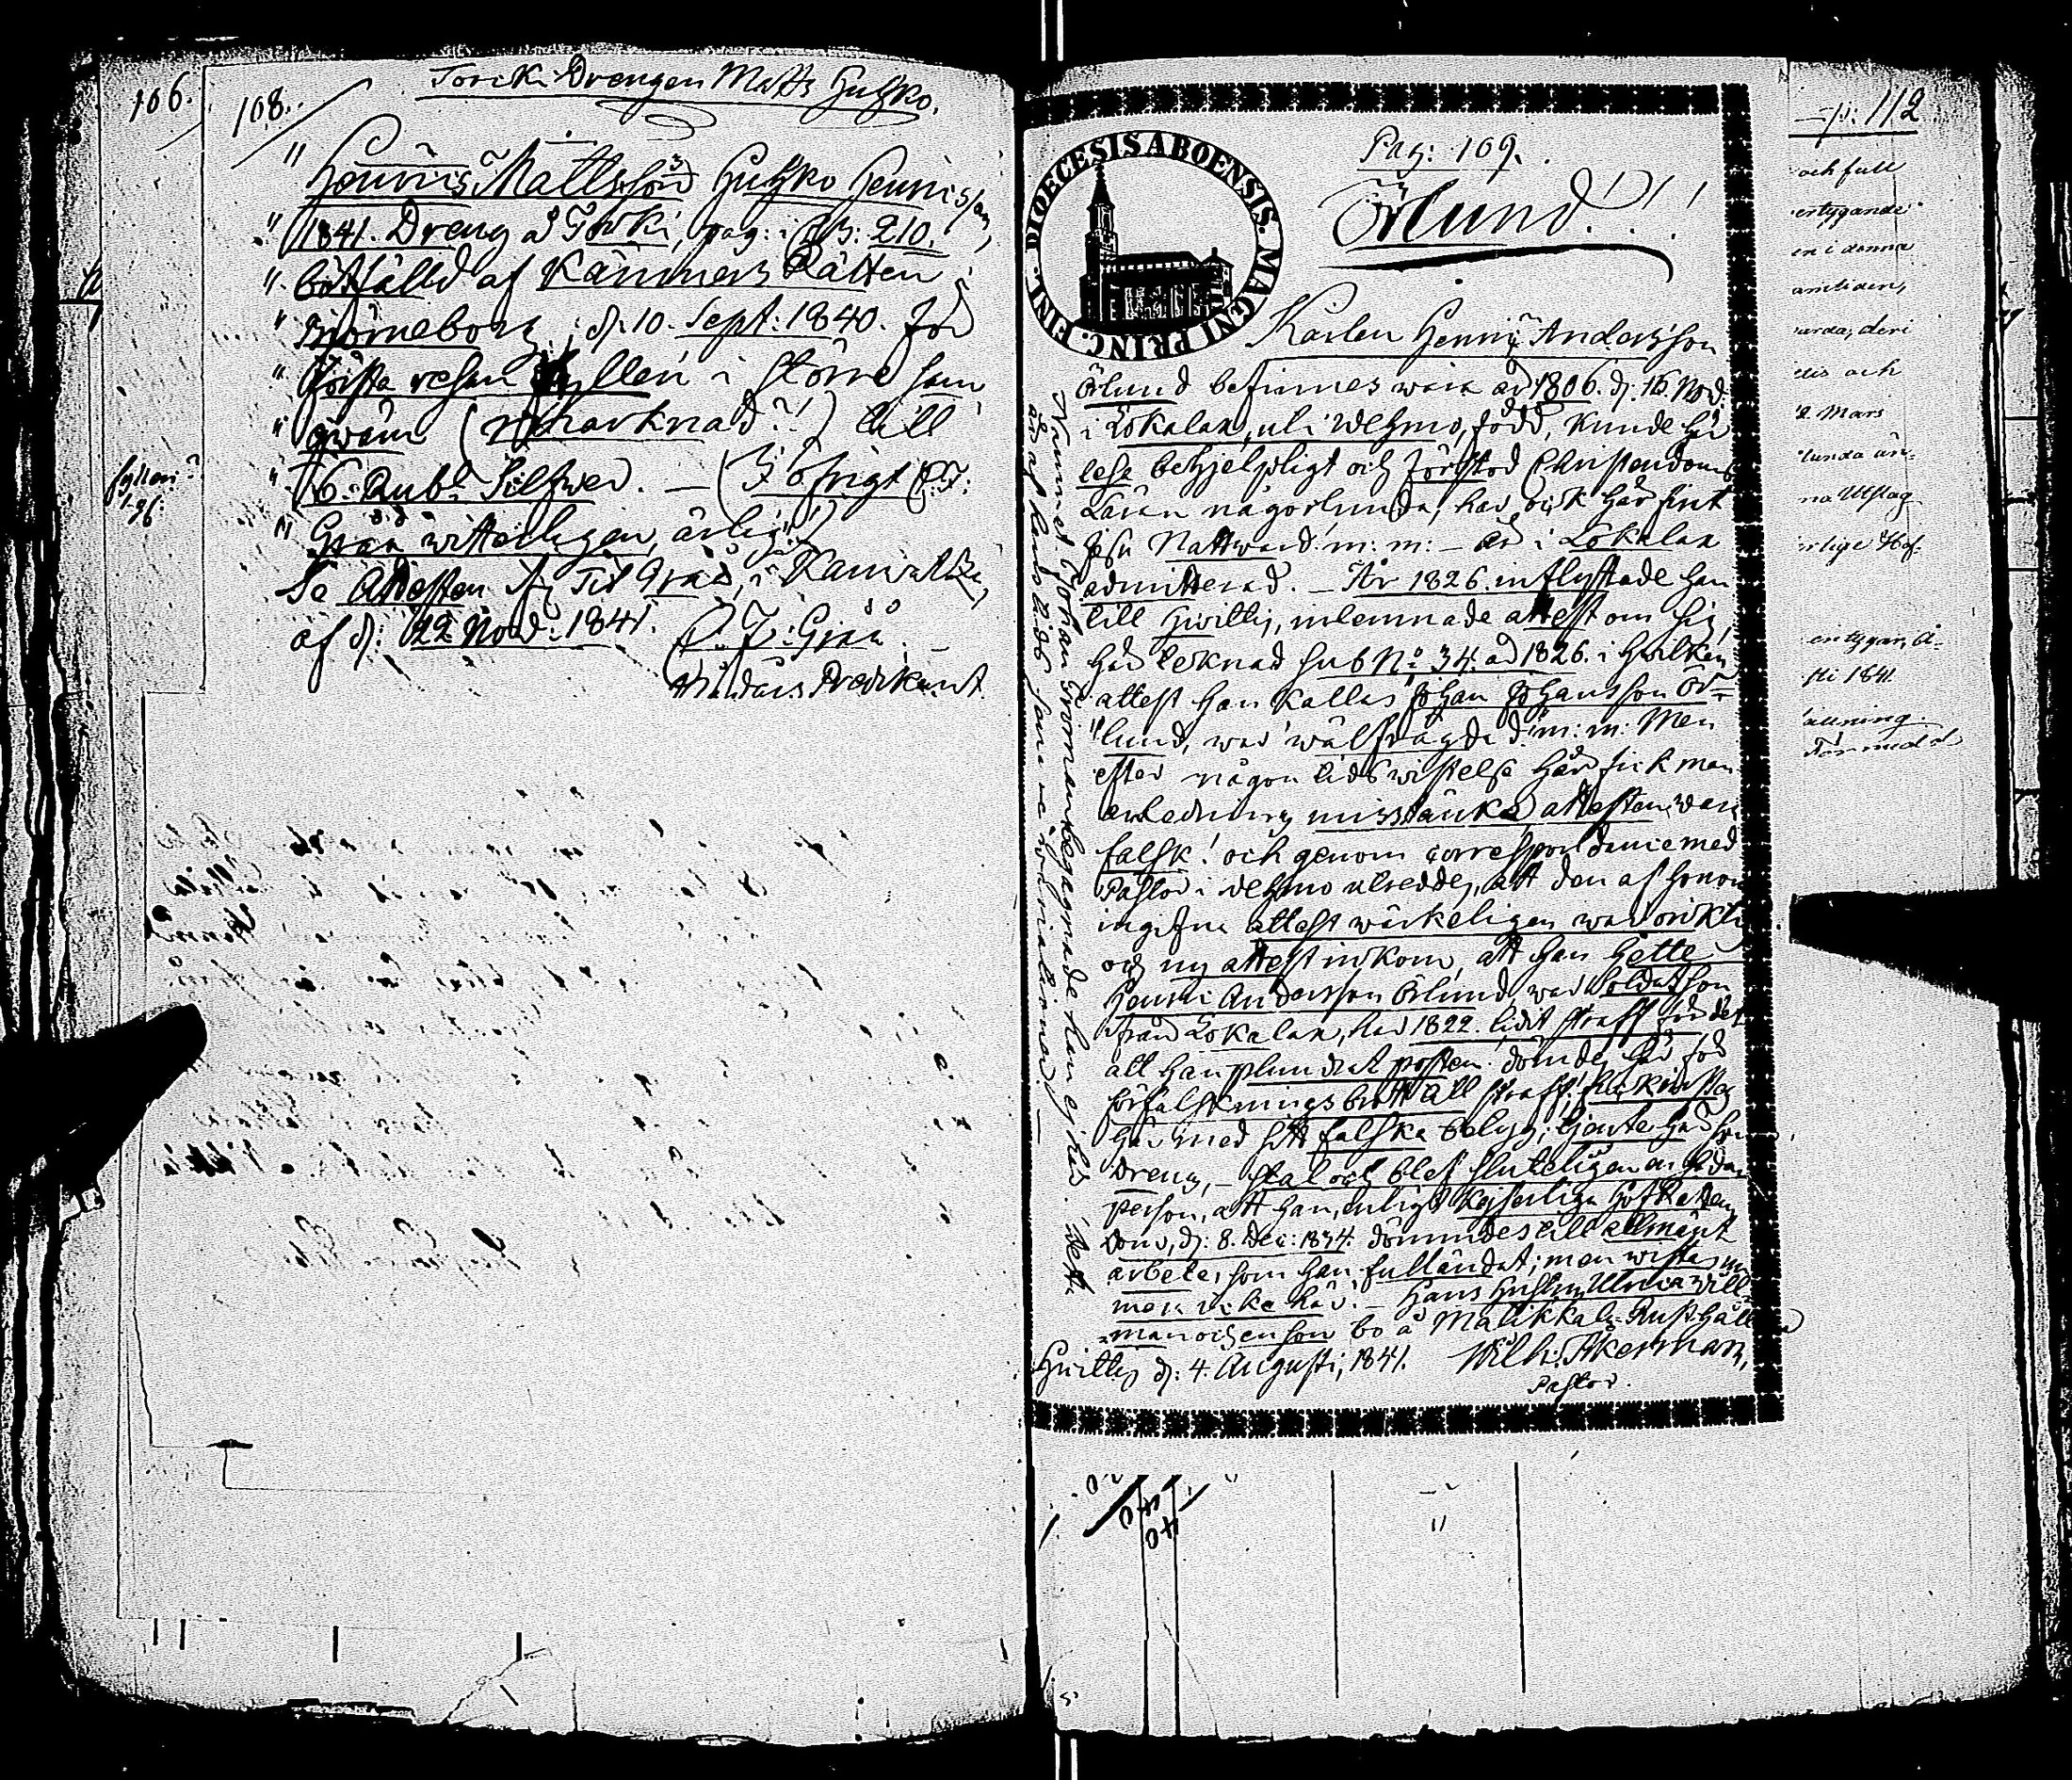 106.
108.
Torcki Drengen Matts Huhko.
" Henric Mattsson Huhko Henricsson,
" 1841. Dreng å Torki, pag: i C.B: 210.
" bötfälld af Kämners Rätten i
" Björneborg, d: 10. Sept: 1840. för
" första resan fylleri i större sam
" qwäm (Marknad?!) till
" 6. Rubl. Silfwer. — (I öfrigt P.T.
" Gran witterligen, ärlig!!)
Se Attesten fr. Til. Gran, i Kauvatsa,
af d: 22 Nov: 1841. P. F: Gran
Nådårs Predikant.
fylleri
1-96:
DIOECESIS ABOENSIS. MAGNI PRINC. FINL.
Pag: 109.
Örlund!!!
Karlen Henric Andersson
Örlund befinnes wara år 1806. d. 16 Nov.
i Lokalax, uti Wehmo, född, kunde här
lesa behjelpligt och förstod Christendoms
Läran någorlunda, har ock här fint
Jesu Nattward m: m: — är i Lokalax
admitterad. — År 1826. inflyttade han
till Hwittis, inlemnade attest om sig,
här tecknad sub No: 34. ad 1826. i hwilken
attest han kallas Johan Johansson Ör=
"lund, war wälfrägdad! m: m: Men
efter någon tids wistelse här fick man
anledning misstänka attesten wara
falsk! och genom correspondance med
Pastor i Wehmo utreddes, att den af honom
ingifne attest wärkeligen war oriktig
och ny attest inkom, att han hette
Henric Andersson Örlund, war Soldatson
ifrån Lokalax, har 1822. lidit straff för det
att han plundrat posten. dömdes här för
förfalskningsbrott till straff!
här med sitt falska betyg; tjente här som
Dreng, — stal och blef sluteligen en sådan
person, att han, enligt Kejserliga HofRättens
Dom, d: 8. Dec: 1834. dömmdes till allmänt
arbete, som han fulländat; men wistas nu
mera icke här. — Hans hustru Ulrica Will=
=man och en son bo å Mälikkala Rusthåll
Hwittis d: 4. Augusti, 1841. Wilh: Åkerman,
Pastor.
Namnet Johan begagnade han ej här. Dette
— p: 112
och full
ertygande
en i denna
amtiden,
arda, deri
elis och
2 Mars
lunda än-
na Utslag
erlige Hof-
ertygar, å-
sti 1841.